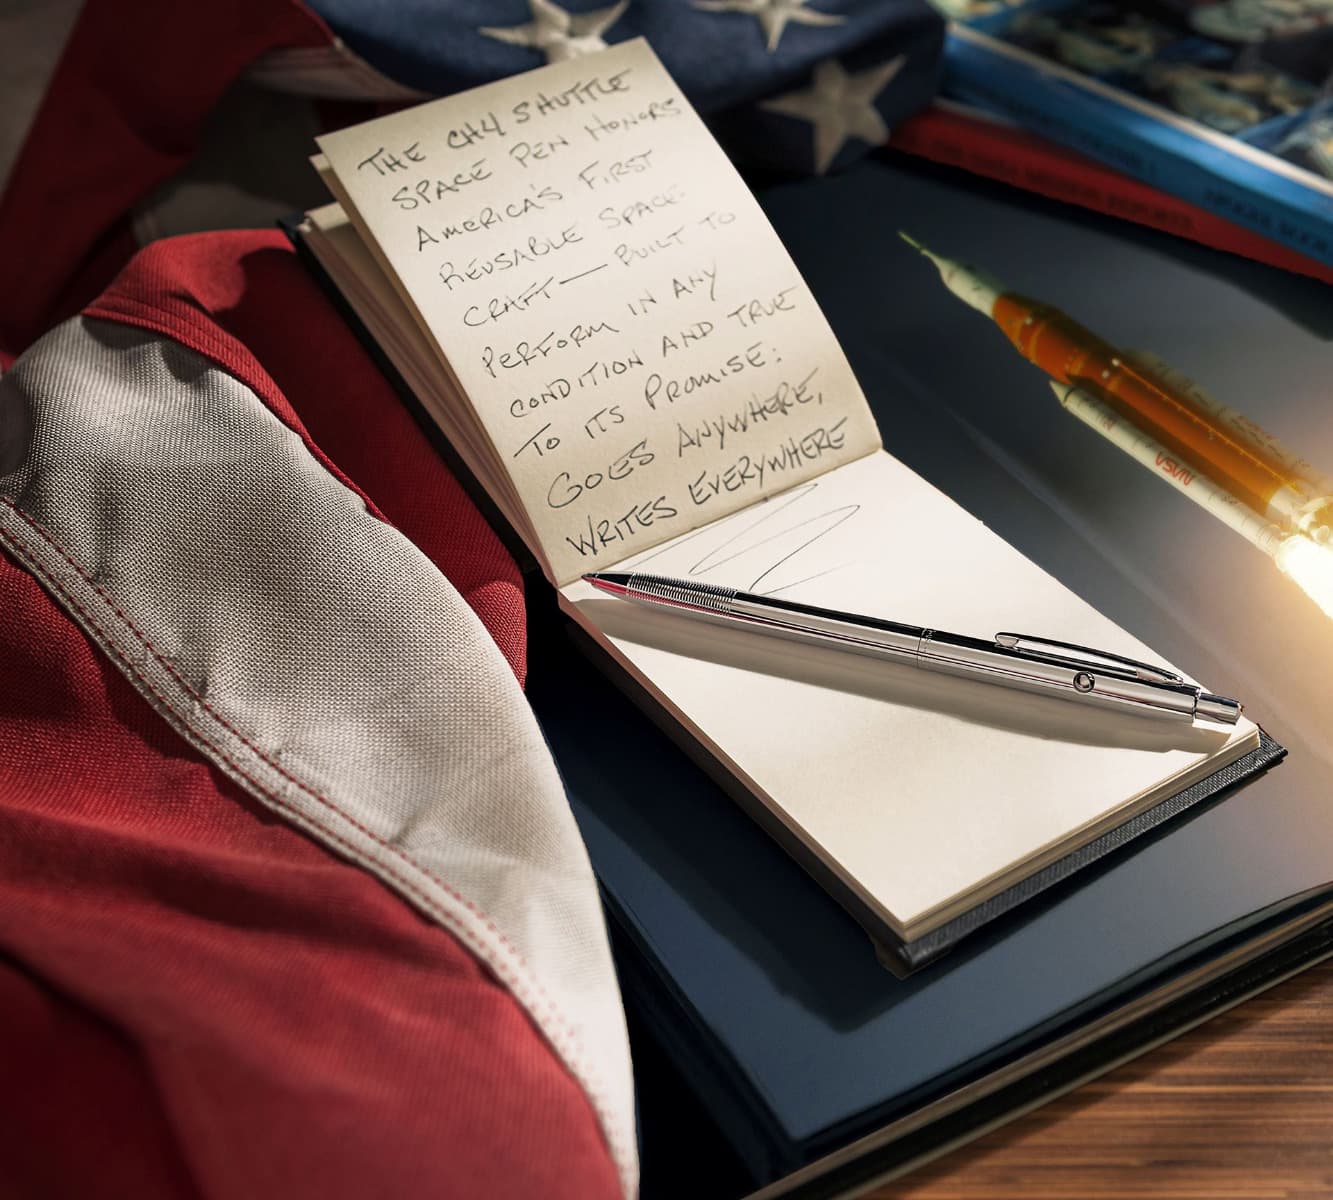 THE CH4 SHUTTLE
SPACE PEN HONORS
AMERICA'S FIRST
REUSABLE SPACE-
CRAFT— BUILT TO
PERFORM IN ANY
CONDITION AND TRUE
TO ITS PROMISE:
GOES ANYWHERE,
WRITES EVERYWHERE
NASA